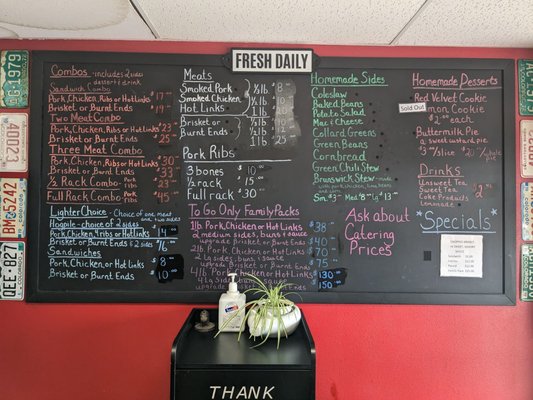 FRESH DAILY
Combos - includes 2 sides
dessert & drink
Sandwich Combo
Pork, Chicken, Ribs or Hot Links $17
Brisket or Burnt Ends $19
Two Meat Combo
Pork, Chicken, Ribs or Hot Links $23
Brisket or Burnt Ends $25
Three Meat Combo
Pork, Chicken, Ribs or Hot Links $30
Brisket or Burnt Ends $33
1/2 Rack Combo - Pork Ribs $23
Full Rack Combo - Pork Ribs $45
Lighter Choice - Choice of one meat and two sides
Hogpile - choice of 2 sides
Pork, Chicken, Ribs or Hotlinks $14
Brisket or Burnt Ends & 2 sides $16
Sandwiches
Pork, Chicken or Hot Links $8
Brisket or Burnt Ends $10
Meats
Smoked Pork
Smoked Chicken
Hot Links
1/2 lb
1 lb
Brisket or
Burnt Ends
1/2 lb
1 lb 25
Pork Ribs
3 bones $10
1/2 rack $15
Full rack $30
To Go Only Family Packs
1 lb Pork, Chicken or Hot Links $38
2 medium sides, buns & sauce
upgrade Brisket or Burnt Ends $40
2 lb Pork, Chicken or Hot Links $70
2 lg sides, buns & sauce
upgrade Brisket or Burnt Ends $75
4 lb Pork, Chicken or Hot Links $130
4 Lg sides, buns & sauce
upgrade Brisket or Burnt Ends $150
Homemade Sides
Coleslaw
Baked Beans
Potato Salad
Mac & Cheese
Collard Greens
Green Beans
Cornbread
Green Chili Stew
Brunswick Stew
Sm. $3 Med $8 Lg $13
Ask about
Catering
Prices
Homemade Desserts
Red Velvet Cookie
Sold Out
Lemon Cookie
$2.00 each
Buttermilk Pie
$3 slice $20 whole pie
Drinks
Unsweet Tea
Sweet Tea
Coke Products
Lemonade
$2
*Specials*
THANK